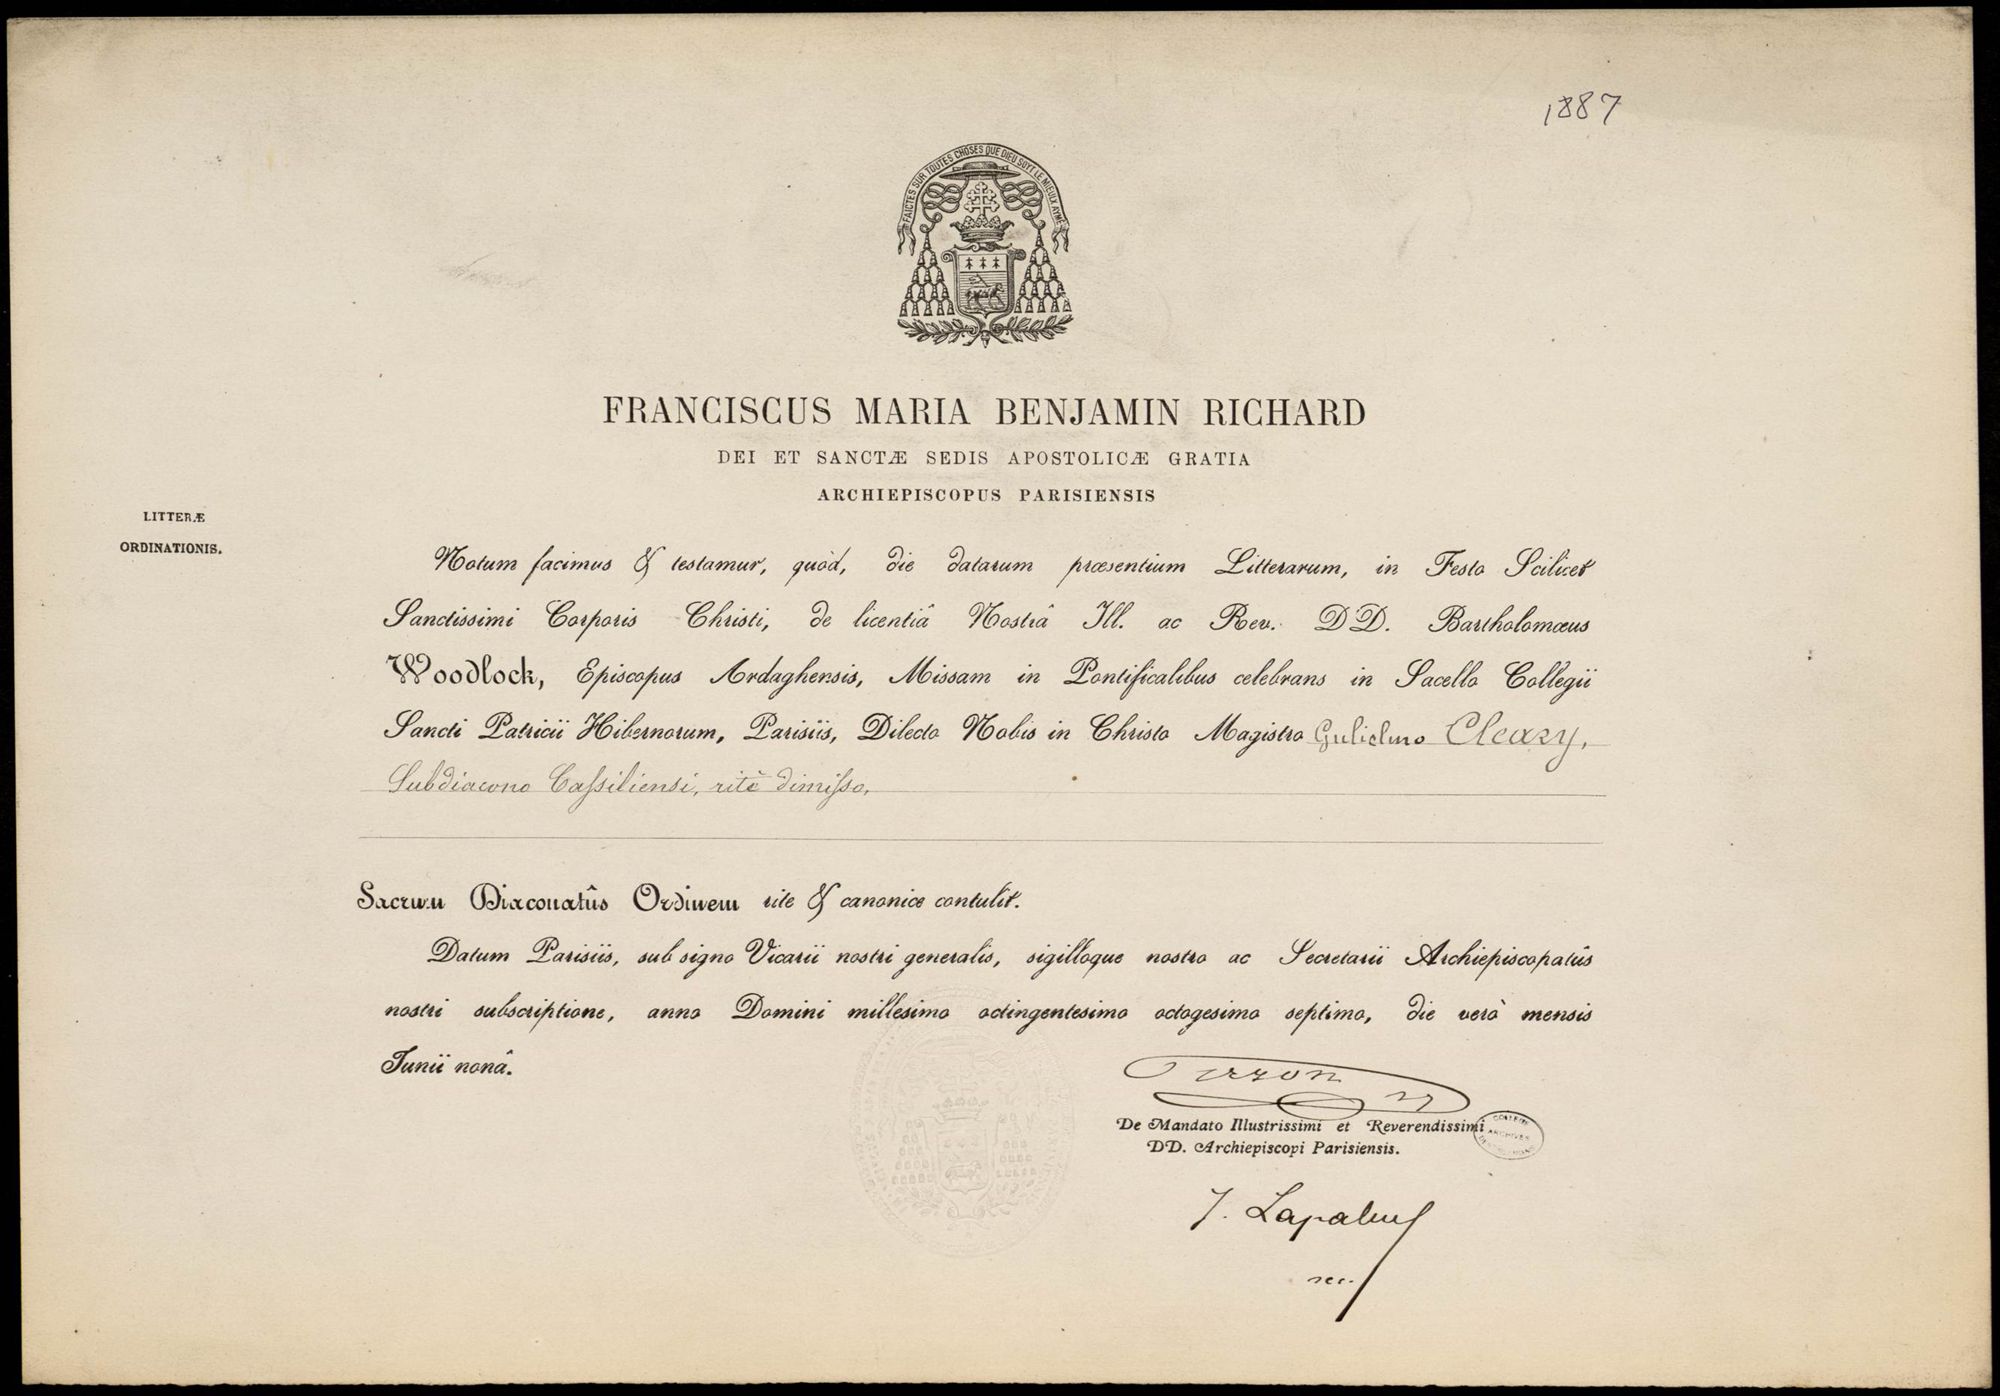 1887
FAICTES SUR TOUTES CHOSES QUE DIEU SOYT LE MIEUX AYMÉ
FRANCISCUS MARIA BENJAMIN RICHARD
DEI ET SANCTÆ SEDIS APOSTOLICÆ GRATIA
ARCHIEPISCOPUS PARISIENSIS
LITTERÆ
ORDINATIONIS.
Notum facimus & testamur, quòd, die datarum præsentium Litterarum, in Festo Scilicet
Sanctissimi Corporis Christi, de licentiâ Nostrâ Ill. ac Rev. DD. Bartholomæus
Woodlock, Episcopus Ardaghensis, Missam in Pontificalibus celebrans in Sacello Collegii
Sancti Patricii Hibernorum, Parisiis, Dilecto Nobis in Christo Magistro Gulielmo Cleary,
Subdiacono Cassiliensi, ritè dimisso,
Sacrum Diaconatûs Ordinem rite & canonice contulit.
Datum Parisiis, sub signo Vicarii nostri generalis, sigilloque nostro ac Secretarii Archiepiscopatûs
nostri subscriptione, anno Domini millesimo octingentesimo octogesimo septimo, die verò mensis
Junii nonâ.
De Mandato Illustrissimi et Reverendissimi
DD. Archiepiscopi Parisiensis.
ARCHIVES
sec.